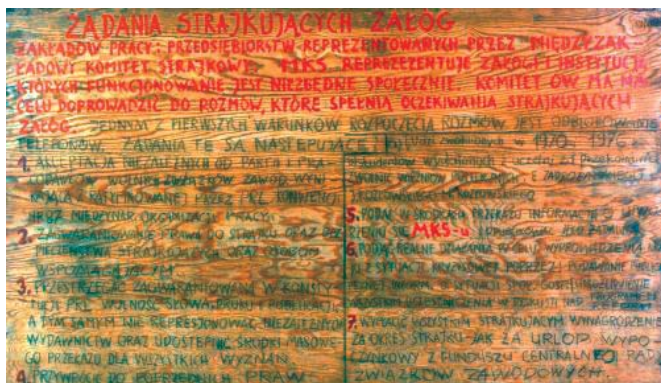 ŻĄDANIA STRAJKUJĄCYCH ZAŁÓG
ZAKŁADÓW PRACY I PRZEDSIĘBIORSTW REPREZENTOWANYCH PRZEZ MIĘDZYZAK-
ŁADOWY KOMITET STRAJKOWY. MKS REPREZENTUJE ZAŁOGI I INSTYTUCJE,
KTÓRYCH FUNKCJONOWANIE JEST NIEZBĘDNE SPOŁECZNIE. KOMITET ÓW MA NA
CELU DOPROWADZIĆ DO ROZMÓW, KTÓRE SPEŁNIĄ OCZEKIWANIA STRAJKUJĄCYCH
ZAŁÓG. JEDNYM Z PIERWSZYCH WARUNKÓW ROZPOCZĘCIA ROZMÓW JEST ODBLOKOWANIE
TELEFONÓW. ŻĄDANIA TE SĄ NASTĘPUJĄCE:
1. AKCEPTACJA NIEZALEŻNYCH OD PARTII I PRA-
CODAWCÓW WOLNYCH ZWIĄZKÓW ZAWOD. WYNI-
KAJĄCA Z RATYFIKOWANEJ PRZEZ PRL KONWENCJI
NR 87 MIĘDZYNAR. ORGANIZACJI PRACY.
2. ZAGWARANTOWANIE PRAWA DO STRAJKU ORAZ BEZ-
PIECZEŃSTWA STRAJKUJĄCYCH ORAZ OSOBOM
WSPOMAGAJĄCYM
3. PRZESTRZEGAĆ ZAGWARANTOWANĄ W KONSTY-
TUCJI PRL WOLNOŚĆ SŁOWA, DRUKU I PUBLIKACJI,
A TYM SAMYM NIE REPRESJONOWAĆ NIEZALEŻNYCH
WYDAWNICTW ORAZ UDOSTĘPNIĆ ŚRODKI MASOWE-
GO PRZEKAZU DLA WSZYSTKICH WYZNAŃ.
4. PRZYWRÓCIĆ DO POPRZEDNICH PRAW
ludzi zwolnionych w 1970 1976 r.
studentów wydalonych z uczelni za przekonania
5. PODAĆ W ŚRODKACH PRZEKAZU INFORMACJĘ O UTWO-
RZENIU SIĘ MKS-u
6. PODJĄĆ REALNE DZIAŁANIA
KRYZYSOWEJ POPRZEZ PODAWANIE PUBLICZ
7. WYPŁACIĆ WSZYSTKIM STRAJKUJĄCYM WYNAGRODZENIE
ZA OKRES STRAJKU JAK ZA URLOP WYPO-
CZYNKOWY Z FUNDUSZU CENTRALNEJ RADY
ZWIĄZKÓW ZAWODOWYCH.